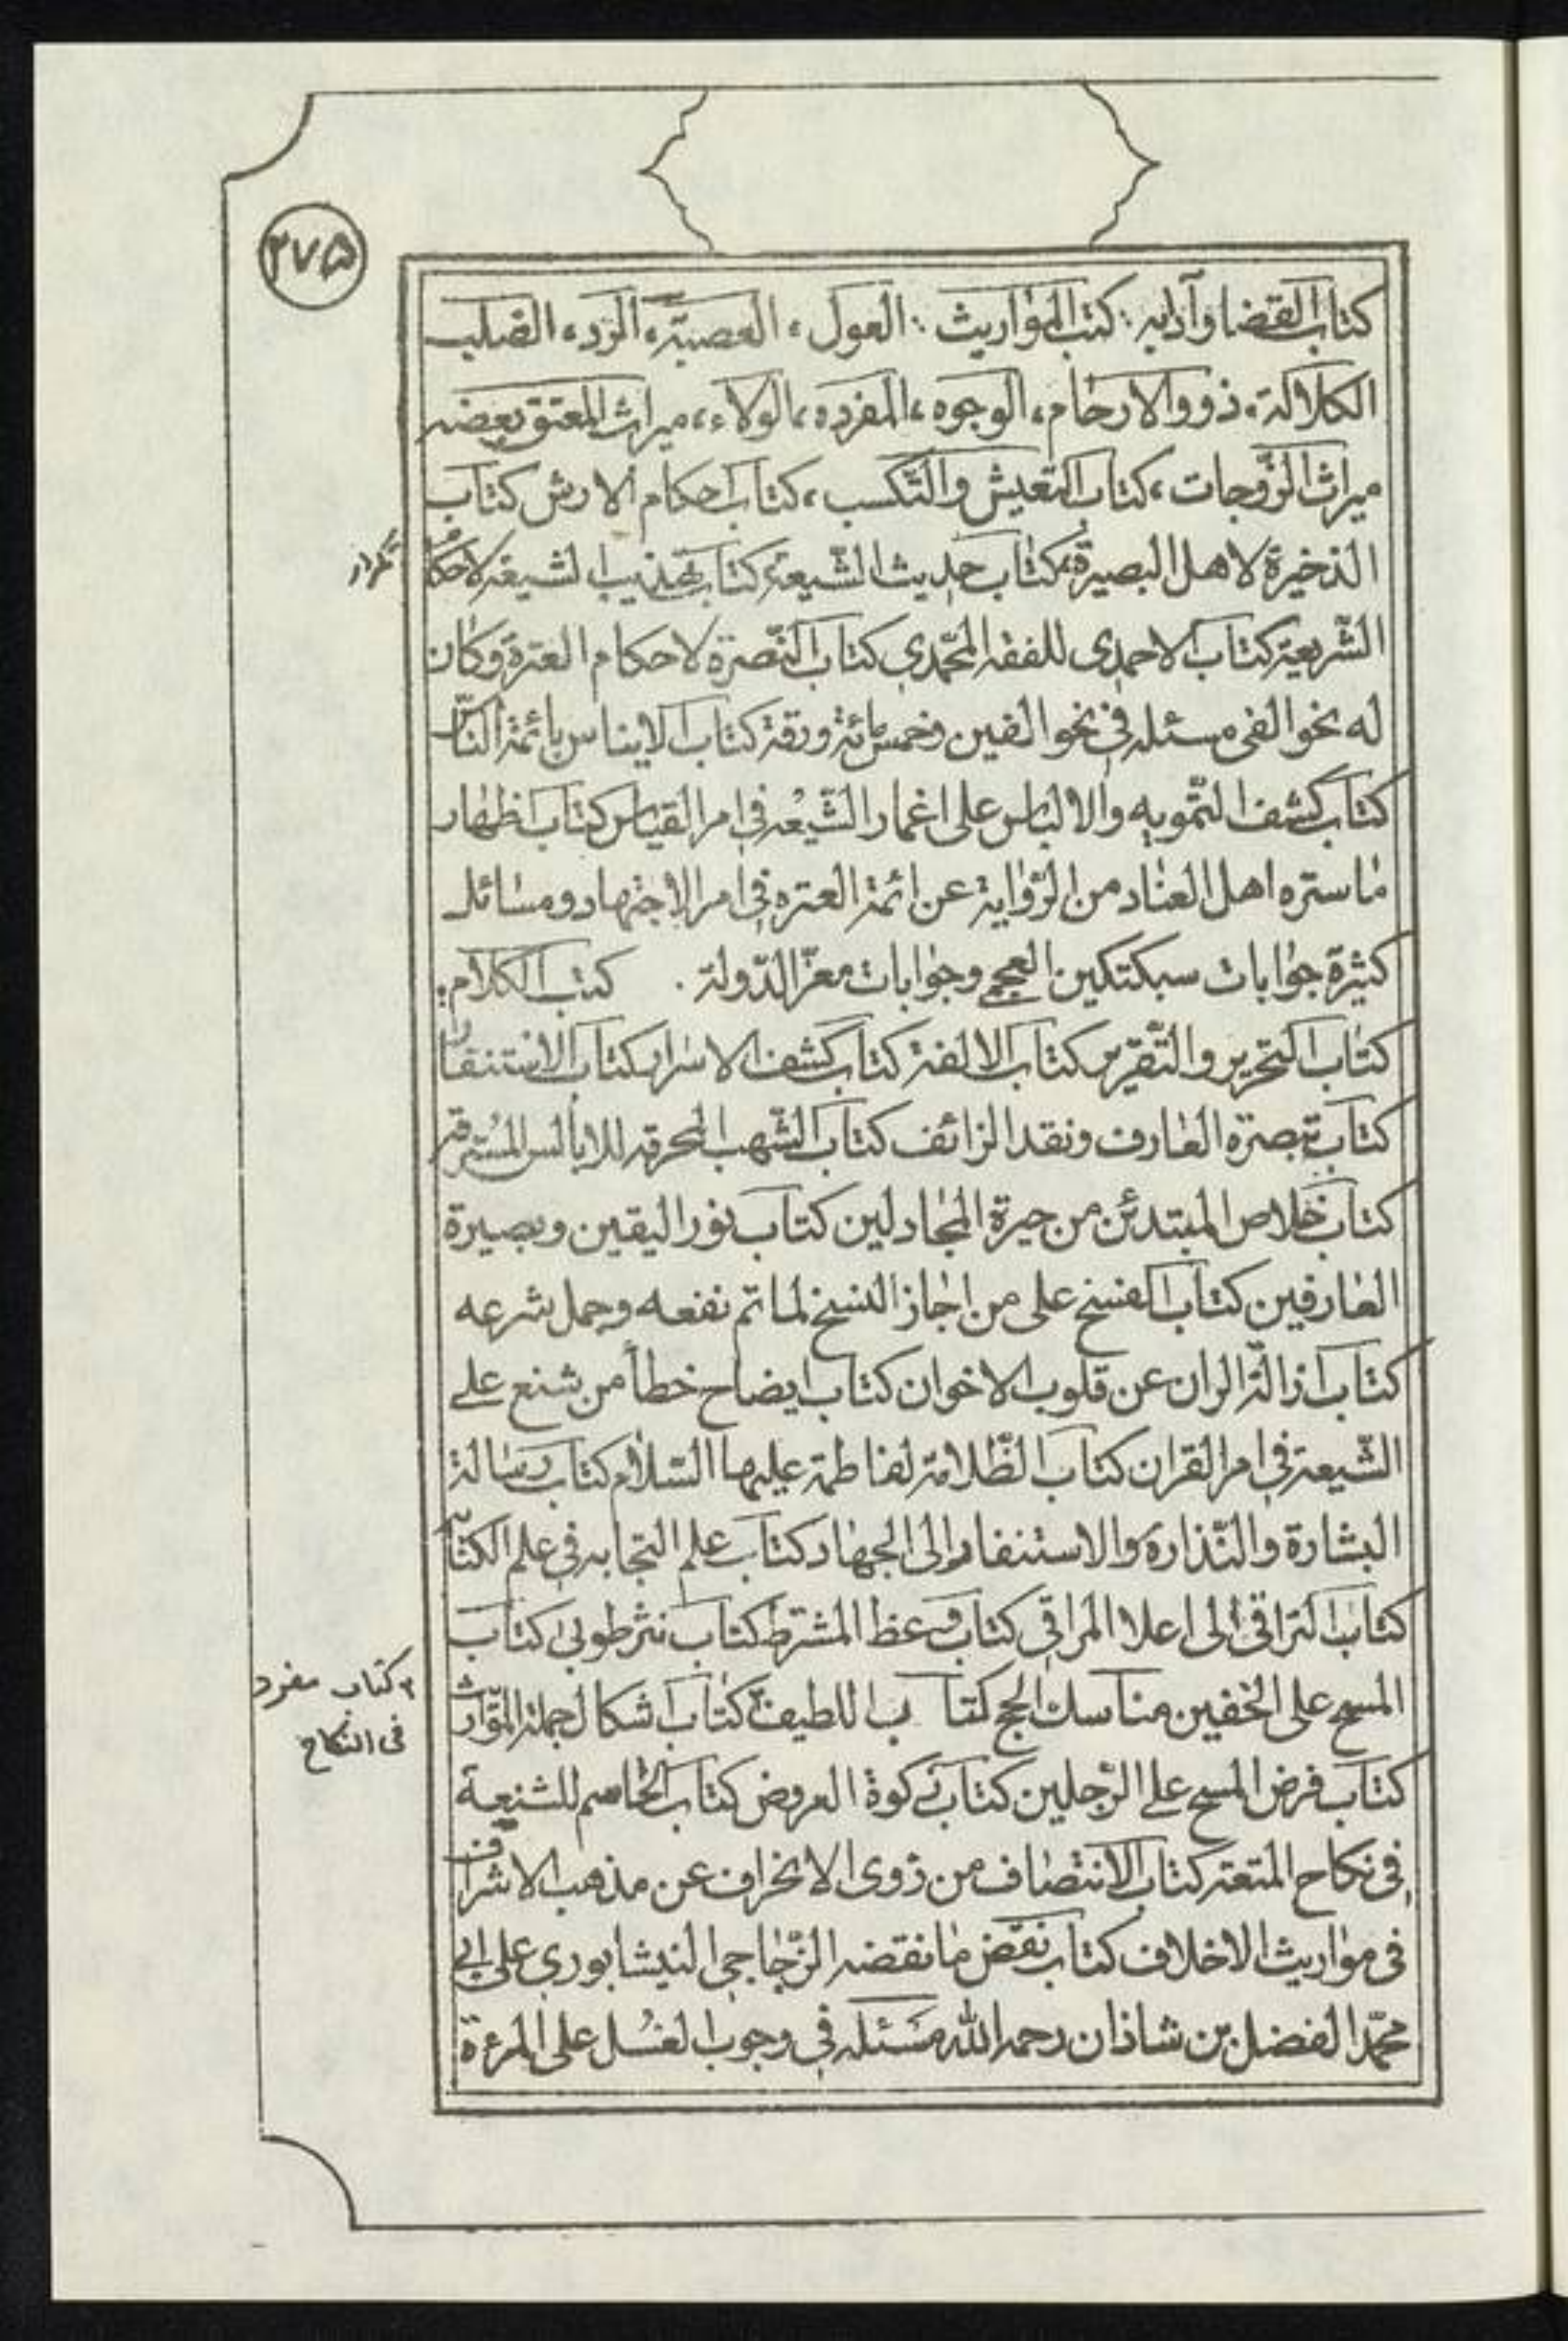 ٢٧۵
كتاب القضا وآدابه : كتب المواريث : العول ، العصبة ، الرد ، الصلب
الكلالة ، ذووالارحام ، الوجوه ، المفرده ، الولاء ، ميراث المعتق بعضه
ميراث الزّوجات ، كتاب التعيش والتّكسب ، كتاب احكام الارش كتاب
الذخيرة لاهل البصيرة ، كتاب حديث الشّيعة كتاب تهذيب الشيعة لاحكام
تكرار
الشّريعة كتاب الاحمدى للفقه المحّمدي كتاب النّصرة لاحكام العترة وكان
له نحو الفى مسئله في نحو الفين وخمس مائة ورقة كتاب الايناس بائمة النّاس
كتاب كشف التّمويه والالباس على اغمار الشّيعه في امر القياس كتاب اظهار
ما ستره اهل العناد من الرّواية عن ائمة العتره في امر الاجتهاد ومسائل
كثيرة جوابات سبكتكين العجمي وجوابات معزّ الدّولة . كتب الكلام :
كتاب التحرير والتّقرير كتاب الالفة كتاب كشف الاسرار كتاب الاستنفار
كتاب تبصرة العارف ونقد الزائف كتاب الشّهب المحرقه للابالس المُسترقه
كتاب خلاص المبتدئن من حيرة المجادلين كتاب نور اليقين وبصيرة
العارفين كتاب الفسخ على من اجاز النسخ لما تم نفعه وجمل شرعه
كتاب ازالة الران عن قلوب الاخوان كتاب ايضاح خطأ من شنع على
الشّيعة في امر القران كتاب الظّلامة لفاطمة عليها السّلام كتاب رسالة
البشارة والنّذارة والاستنفار الى الجهاد كتاب علم النجابه في علم الكتاب
كتاب التراقى الى اعلا المراقي كتاب وعظ المشترط كتاب نثر طوبى كتاب
المسح على الخفين مناسك الحج كتاب اللطيف كتاب اشكال جملة المواريث
۲ كتاب مفرد
فى النكاح
كتاب فرض المسح على الرّجلين كتاب زكوة العروض كتاب الحاسم للشنيعة
في نكاح المتعة كتاب الانتصاف من ذوى الانحراف عن مذهب الاشراف
فى مواريث الاخلاف كتاب نقض ما نقضه الزّجاجى النيشابوري على ابي
محمّد الفضل بن شاذان رحمه الله مسئله في وجوب الغسل على المرءة